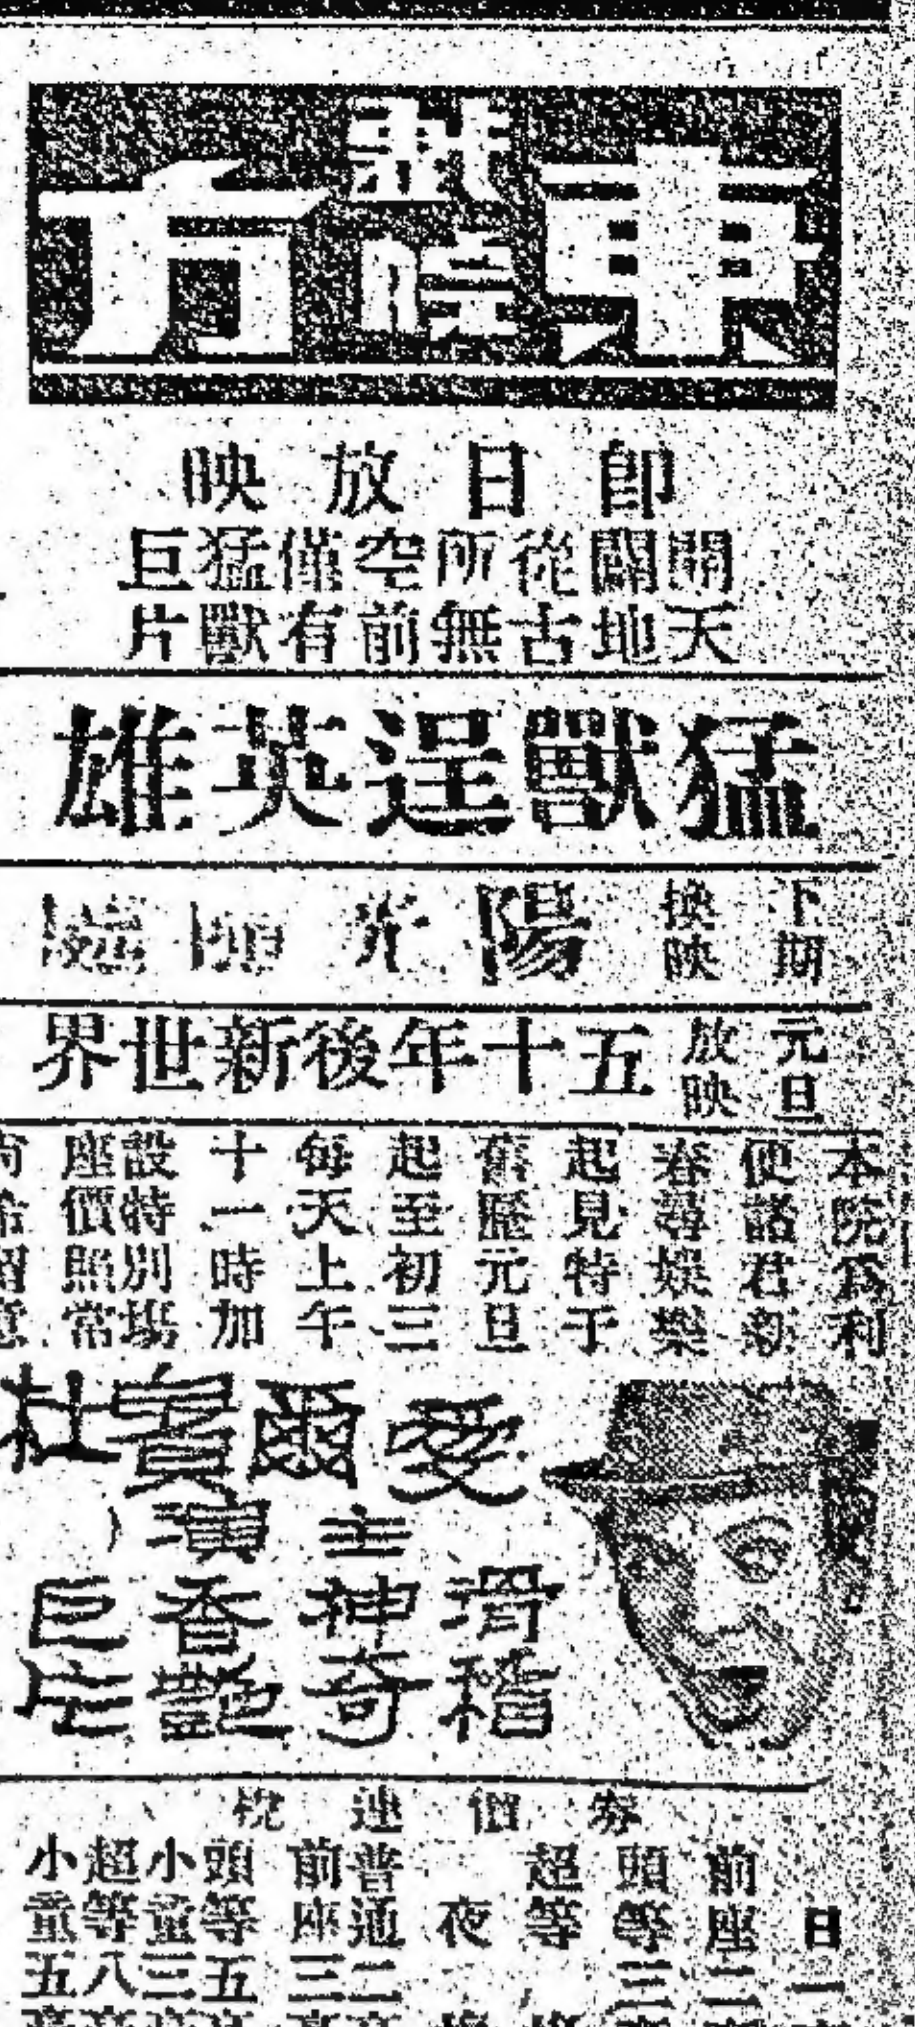 東方
戲院
即日放映
開天闢地從古所無空前僅有猛獸巨片
猛獸逞英雄
下期換映 陽光
元旦放映 五十年後新世界
本院為利
便諸君新
春尋娛樂
起見特于
舊歷元旦
起至初三
每天上午
十一時加
設特別場
座價照常
愛爾賓杜
主演
滑稽神奇香艷巨片
券價連稅
日
前座二
頭等三
超等
夜
普通二
前座三
頭等五
小童三
超等八
小童五